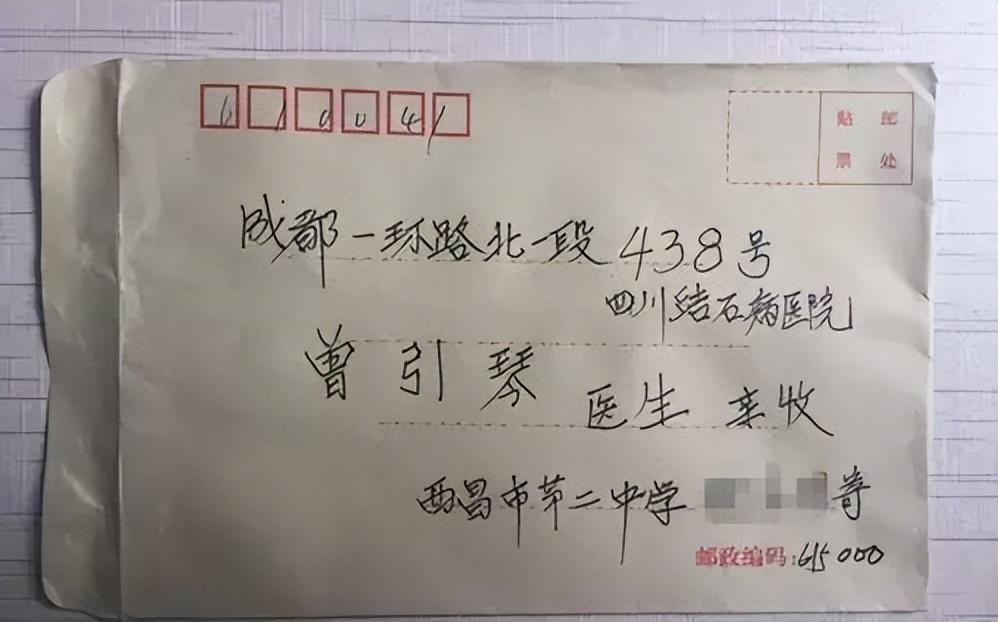 610041
贴邮
票处
成都一环路北一段438号
四川结石病医院
曾引琴 医生 亲收
西昌市第二中学 寄
邮政编码:615000